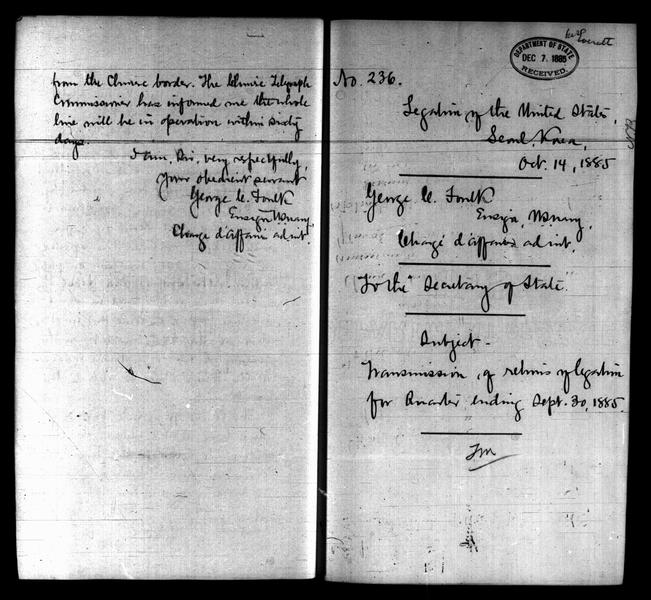 from the Chinese border. The Chinese Telegraph
Commissioner has informed me the whole
line will be in operation within sixty
days.
I am, Sir, very respectfully,
Your obedient servant
George C. Foulk
Ensign, U.S. Navy,
Chargé d'Affaires ad int.
DEPARTMENT OF STATE
DEC 7 1885
RECEIVED.
No. 236.
Legation of the United States,
Seoul, Korea,
Oct. 14, 1885
George C. Foulk
Ensign, U.S. Navy,
Chargé d'Affaires ad int.
"To the" Secretary of State.
Subject -
Transmission of returns of legation
for Quarter ending Sept. 30, 1885.